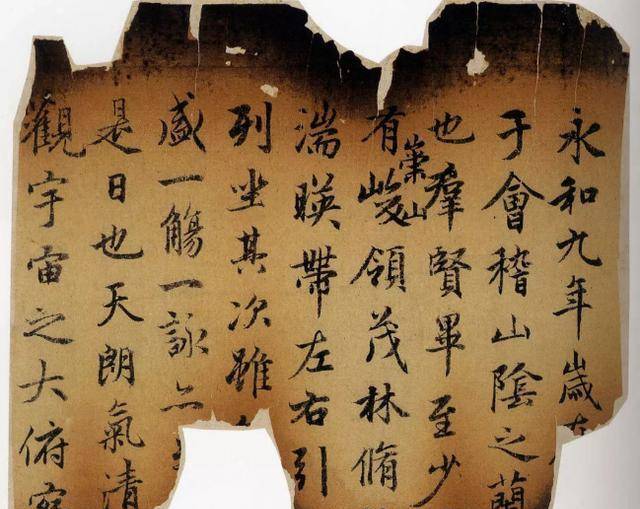 永和九年歲在
于會稽山陰之蘭
也羣賢畢至少
有崇山峻領茂林脩
湍暎帶左右引
列坐其次雖
盛一觴一詠亦
是日也天朗氣清
觀宇宙之大俯察